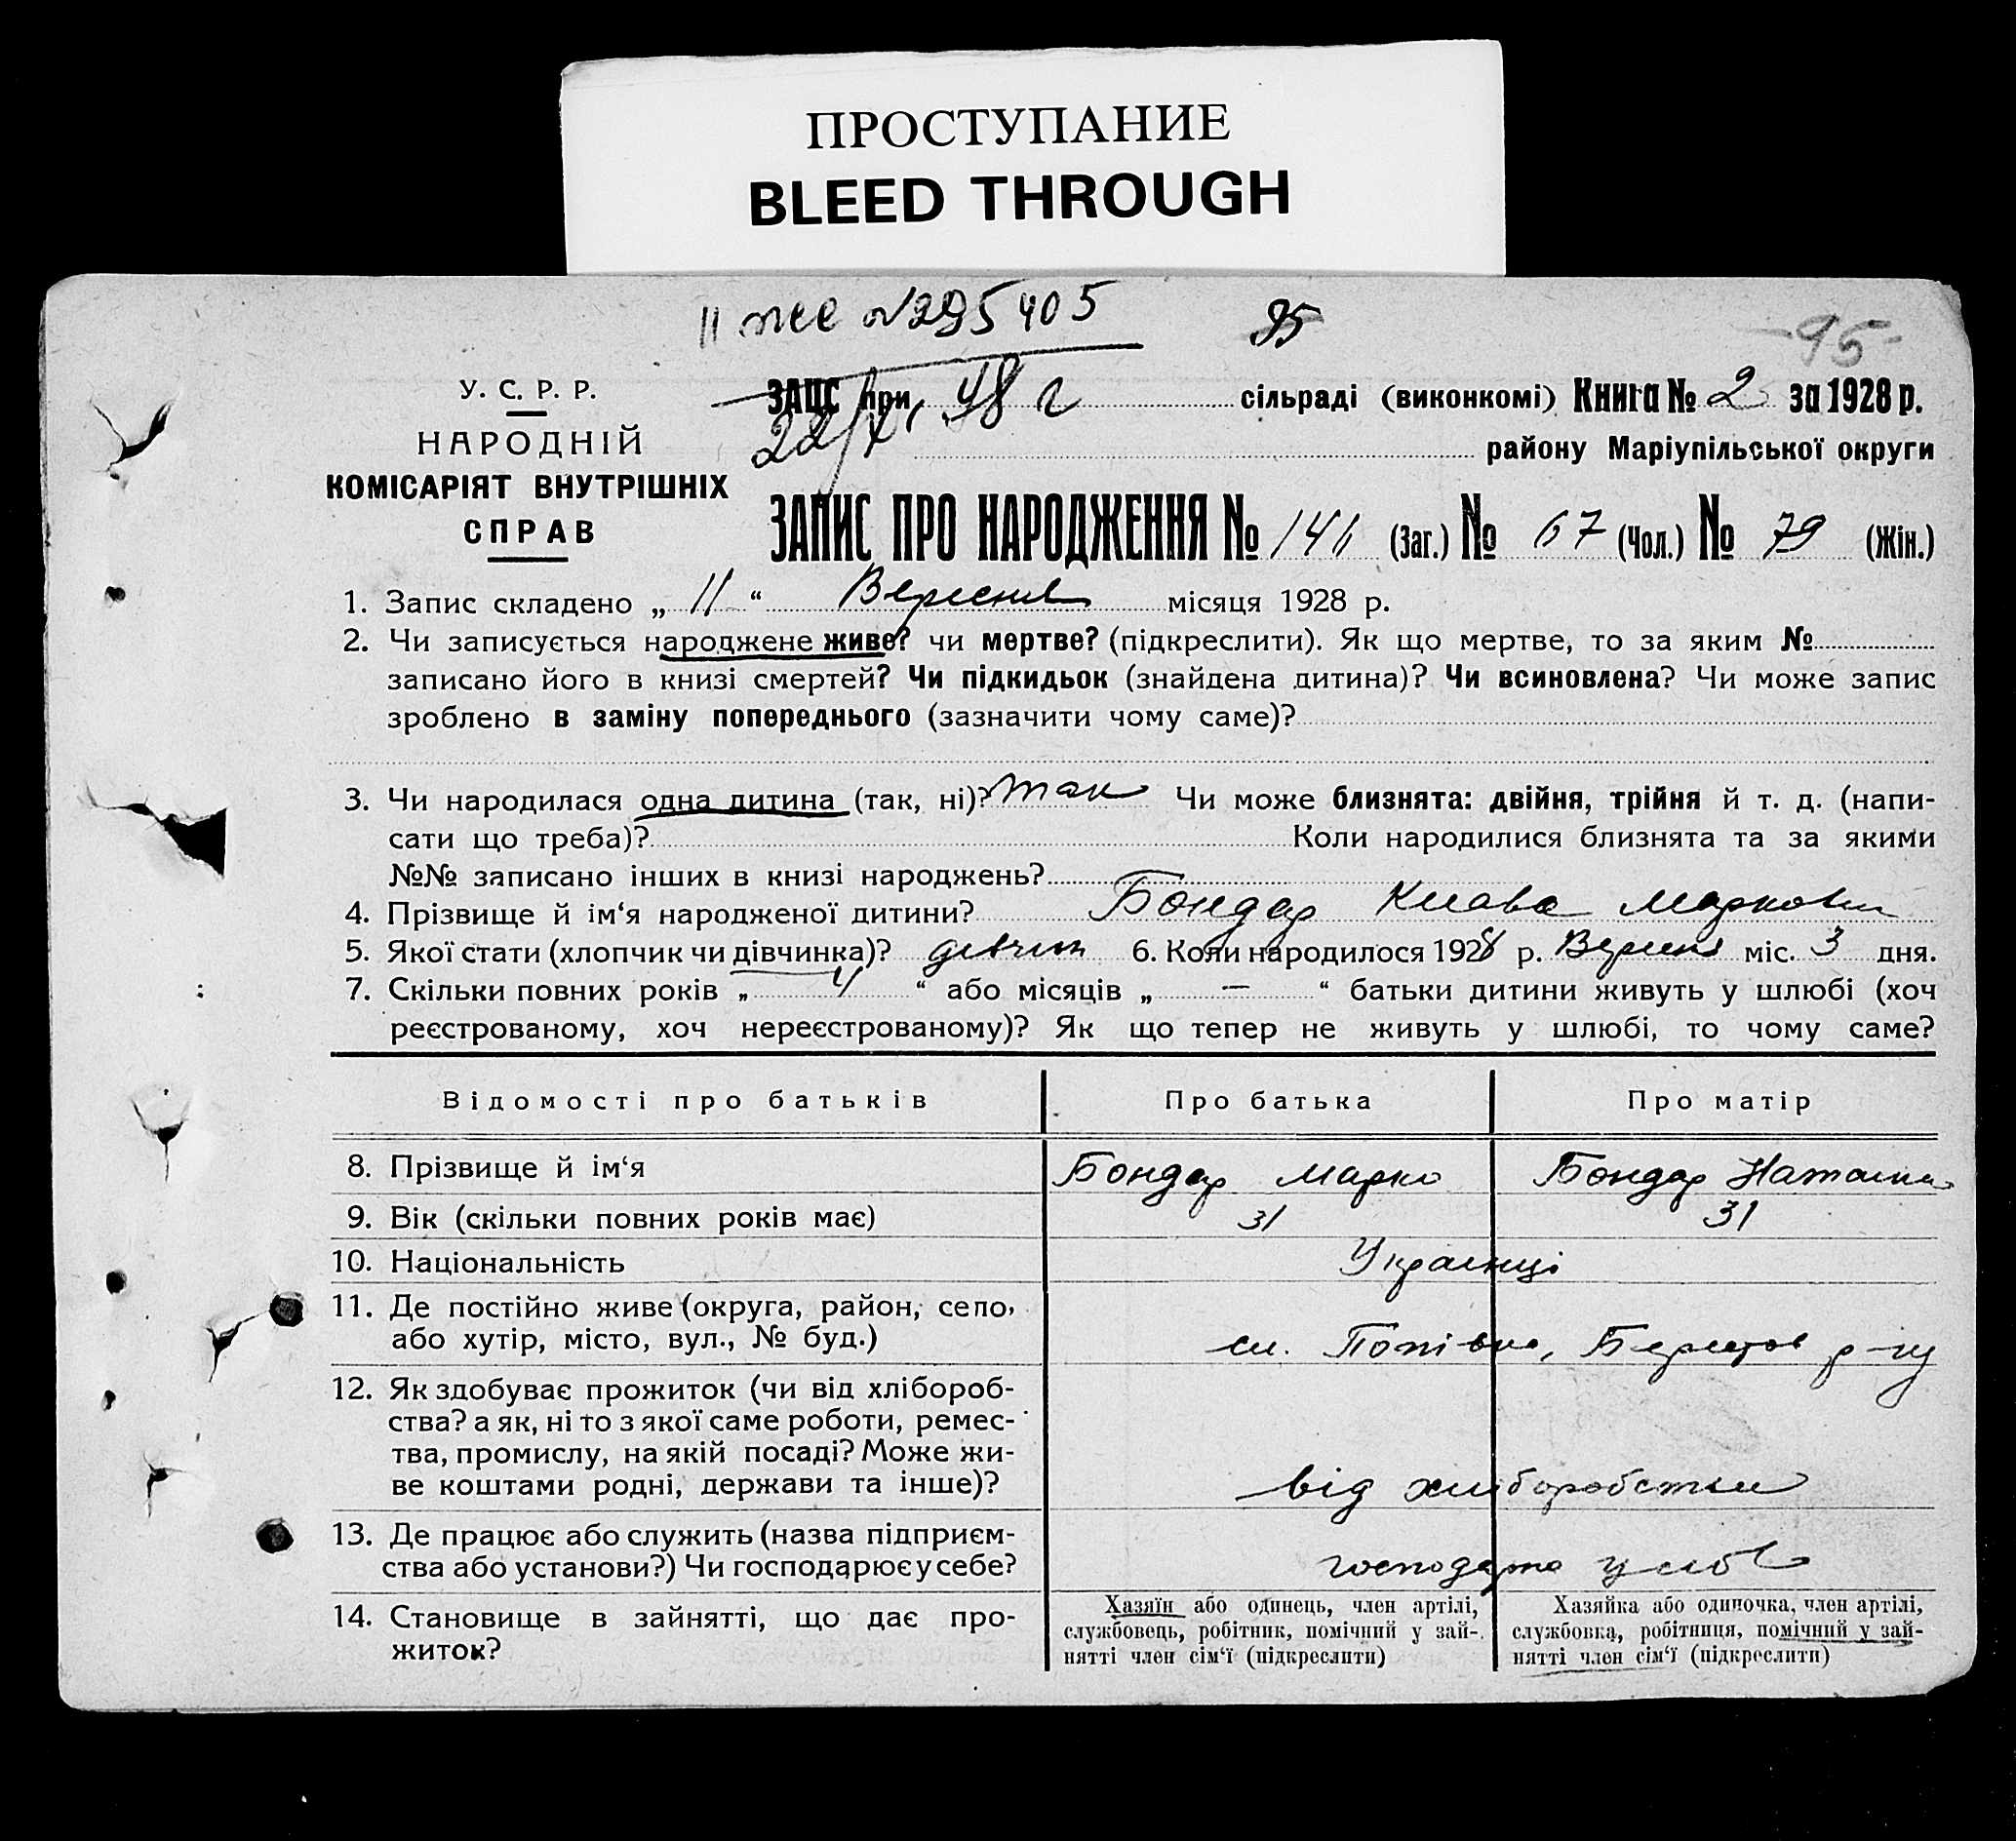 ПРОСТУПАНИЕ
BLEED THROUGH
II же № 295405
95
-95-
У. С. Р. Р.
НАРОДНІЙ
КОМІСАРІЯТ ВНУТРІШНІХ
СПРАВ
ЗАЦС при 48 г сільраді (виконкомі) Книга № 2 за 1928 р.
22/XI району Маріупільської округи
ЗАПИС ПРО НАРОДЖЕННЯ № 146 (Заг.) № 67 (Чол.) № 79 (Жін.)
1. Запис складено „ 11 “ Вересня місяця 1928 р.
2. Чи записується народжене живе? чи мертве? (підкреслити). Як що мертве, то за яким №
записано його в книзі смертей? Чи підкидьок (знайдена дитина)? Чи всиновлена? Чи може запис
зроблено в заміну попереднього (зазначити чому саме)?
3. Чи народилася одна дитина (так, ні)? так Чи може близнята: двійня, трійня й т. д. (напи-
сати що треба)? Коли народилися близнята та за якими
№№ записано інших в книзі народжень?
4. Прізвище й ім‘я народженої дитини? Бондар Клава Марковн
5. Якої стати (хлопчик чи дівчинка)? дівчин 6. Коли народилося 1928 р. Вересня міс. 3 дня.
7. Скільки повних років „ 4 “ або місяців „ — “ батьки дитини живуть у шлюбі (хоч
реєстрованому, хоч нереєстрованому)? Як що тепер не живуть у шлюбі, то чому саме?
Відомості про батьків Про батька Про матір
8. Прізвище й ім‘я Бондар Марко Бондар Наталка
9. Вік (скільки повних років має) 31 31
10. Національність Українці
11. Де постійно живе (округа, район, село,
або хутір, місто, вул., № буд.) сл. Попівка, Берестов р-ну
12. Як здобуває прожиток (чи від хлібороб-
ства? а як, ні то з якої саме роботи, ремес-
тва, промислу, на якій посаді? Може жи-
ве коштами родні, держави та інше)? від хліборобства
13. Де працює або служить (назва підприєм-
ства або установи?) Чи господарює у себе? господарює у себе
14. Становище в зайнятті, що дає про-
житок?
Хазяїн або одинець, член артілі,
службовець, робітник, помічний у зай-
нятті член сім‘ї (підкреслити)
Хазяйка або одиночка, член артілі,
службовка, робітниця, помічний у зай-
нятті член сім‘ї (підкреслити)